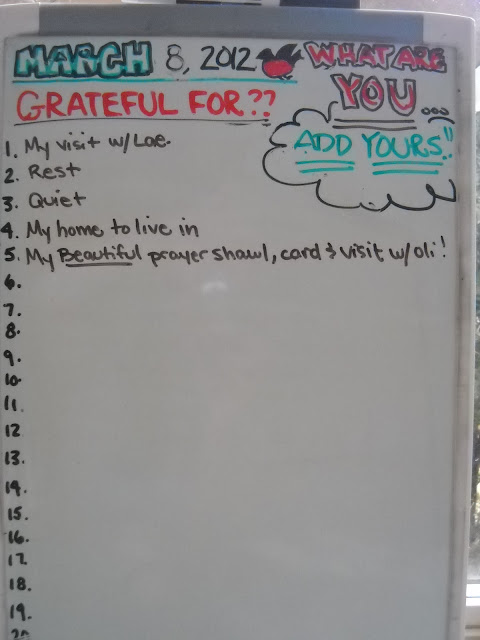 MARCH 8, 2012 WHAT ARE
GRATEFUL FOR?? YOU...
ADD YOURS!!
1. My visit w/ Lae.
2. Rest
3. Quiet
4. My home to live in
5. My Beautiful prayer shawl, card & visit w/ oli!
6.
7.
8.
9.
10.
11.
12
13.
14.
15.
16.
17.
18.
19.
20